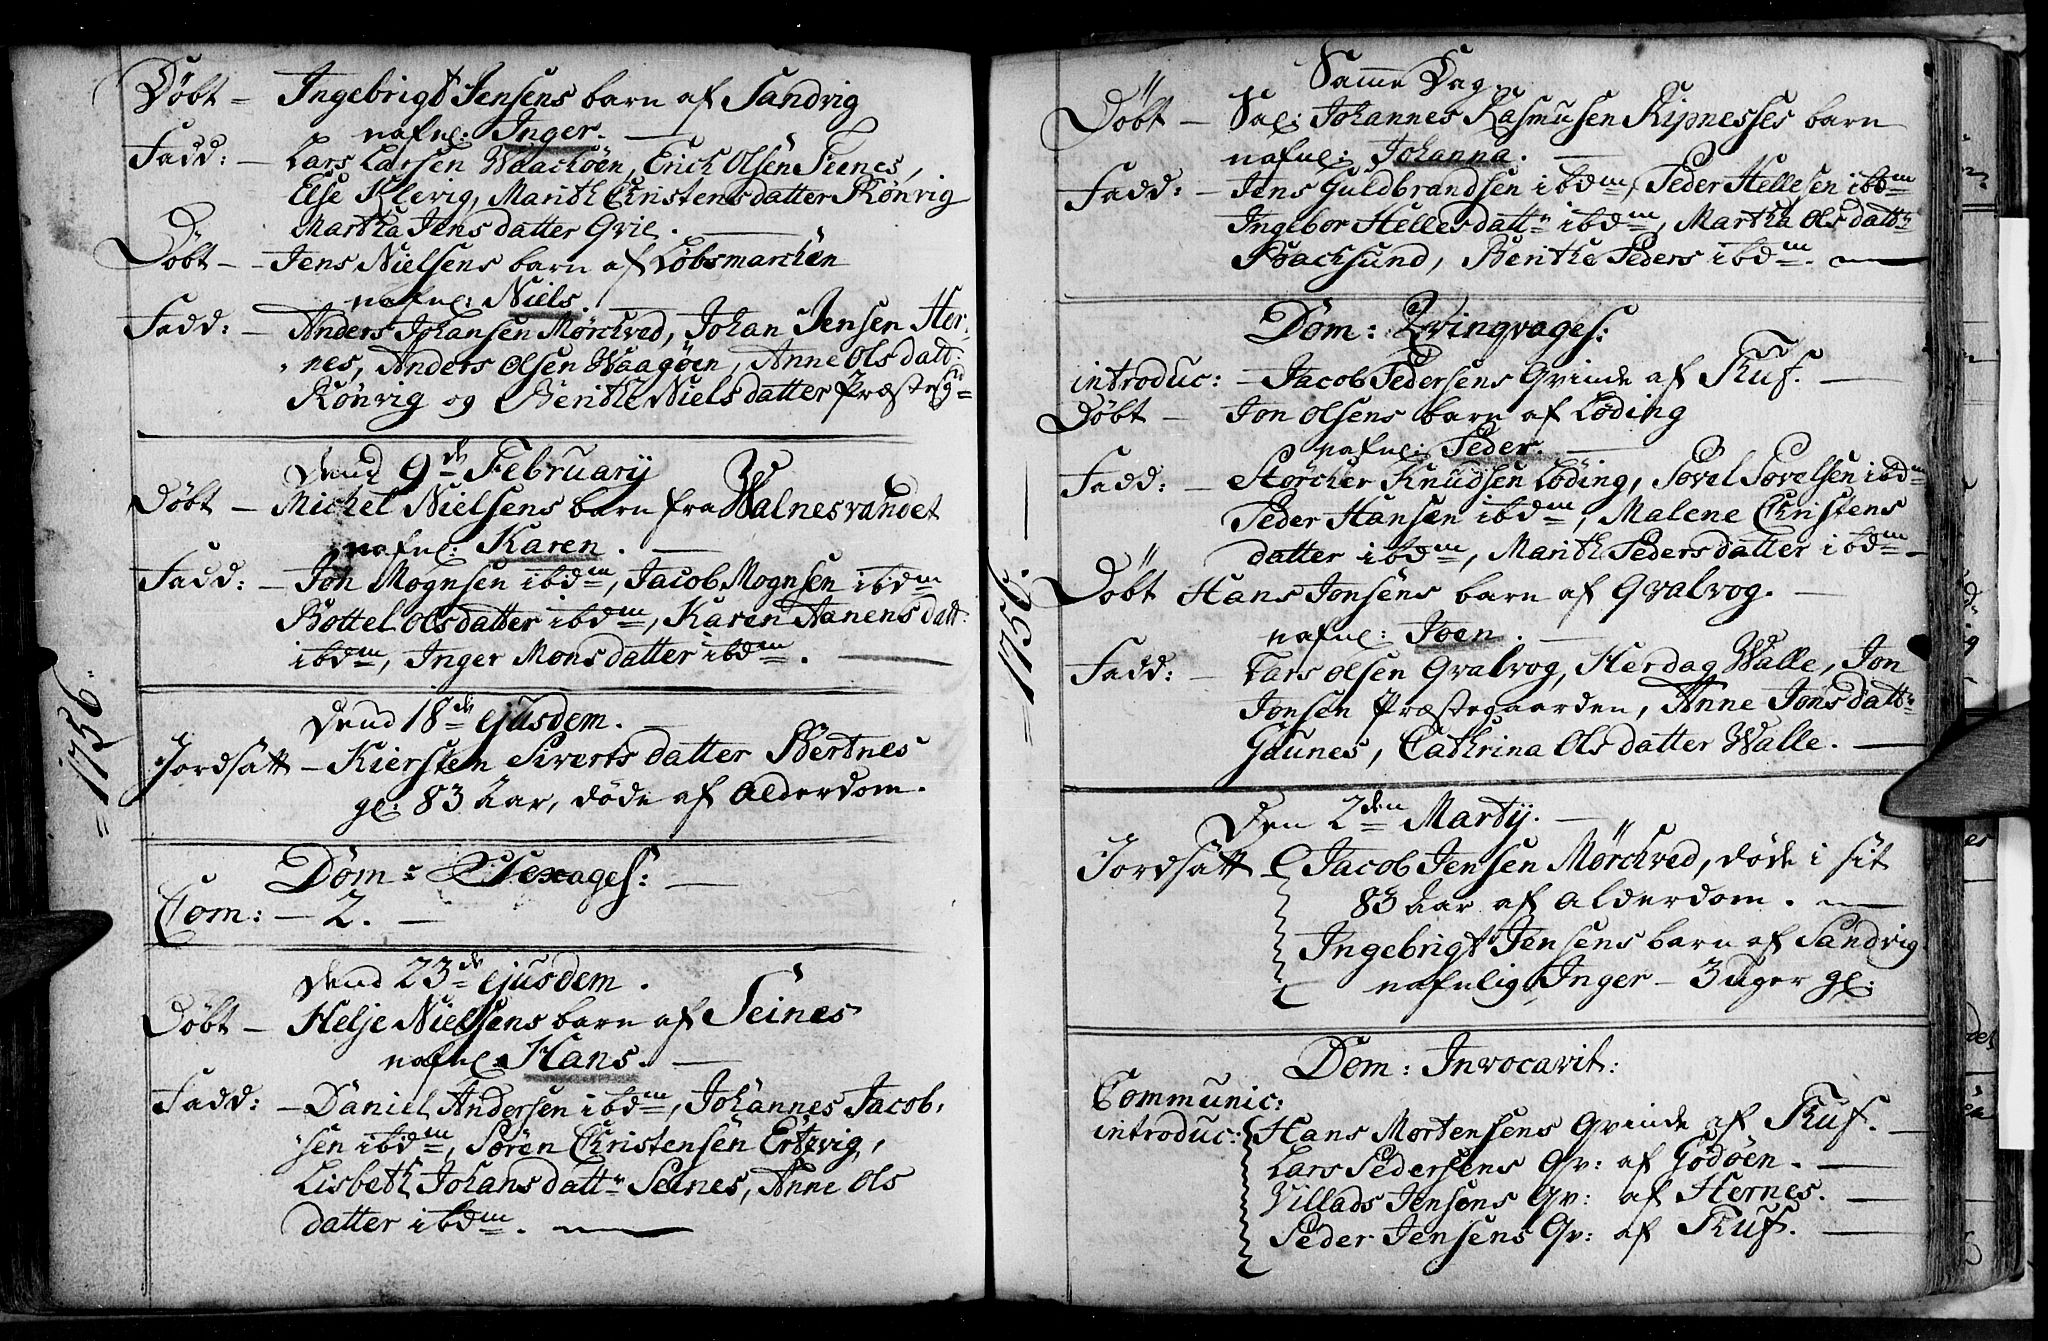 Døbt – Ingebrigt Jensens barn af Sandvig
nafnl: Inger. —
Fadd: – Lars Larsen Waachøen, Erich Olsen
Else Klevig, Marith Christensdatter Rönvig
Martha Jensdatter Qvie. —
Døbt – Jens Nielsens barn af Løbsmarchen
nafnl: Niels.
Fadd: – Anders Johansen Mørchved, Johan Jensen Her-
nes, Anders Olsen Waagøen, Anne Olsdatt:
Rönvig og Berithe Nielsdatter Præsteg:
Dend 9de February
Døbt – Michel Nielsens barn fra Walnesvandet
nafnl: Karen. —
Fadd: – Jon Mognsen ibdm, Jacob Mognsen ibdm
Bottel Olsdatter ibdm, Karen Aanensdatt:
ibdm, Inger Monsdatter ibdm. —
=1756=
Dend 18de ejusdem. —
Jordsatt – Kiersten Siverts datter Bertnes
gl: 83 Aar, døde af Alderdom.
Dom: Sexages: —
Com: – 2. —
Dend 23de ejusdem.
Døbt – Helje Nielsens barn af Seines
nafnl: Hans. —
Fadd: – Daniel Andersen ibdm, Johannes Jacob-
sen ibdm, Sören Christensen Ertzvig,
Lisbeth Johansdattr Seines, Anne Ols
datter ibdm. —
Samme Dag.
Døbt – Sal: Johannes Rasmusen Kipnesses barn
nafnl: Johanna. —
Fadd: – Jens Guldbrandsen ibdm, Peder Hellesen ibdm
Ingebor Hellesdattr ibdm, Martha Olsdattr
Poachsund, Berithe Peders ibdm. —
Dom: Qvinqvages:
introduc: – Jacob Pedersens Qvinde af Skuf. —
Døbt – Jon Olsens barn af Løding
nafnl: Peder. —
Fadd: – Størcher Knudsen Løding, Povel Povelsen ibdm
Peder Hansen ibdm, Malene Christens
datter ibdm, Marith Pedersdatter ibdm –
Døbt Hans Jonsens barn af Qvalvog. —
nafnl: Joen. —
Fadd: – Lars Olsen Qvalvog, Herdag Walle, Jon
Jonsen Præstegaarden, Anne Jonsdattr
Gaunes, Cathrina Olsdatter Walle. —
=1756.—
Den 2den Martij. —
Jordsatt – Jacob Jensen Mørchved, døde i sit
83 Aar af Alderdom. —
Ingebrigt Jensens barn af Sandvig
nafnlig Inger – 3 Uger gl:
Dom: Invocavit:
Communic:
introduc: Hans Mortensens Qvinde af Skuf. —
Lars Pedersens Qv: af Godøen. —
Villads Jensens Qv: af Hernes. —
Peder Jensens Qv: af Skuf. —